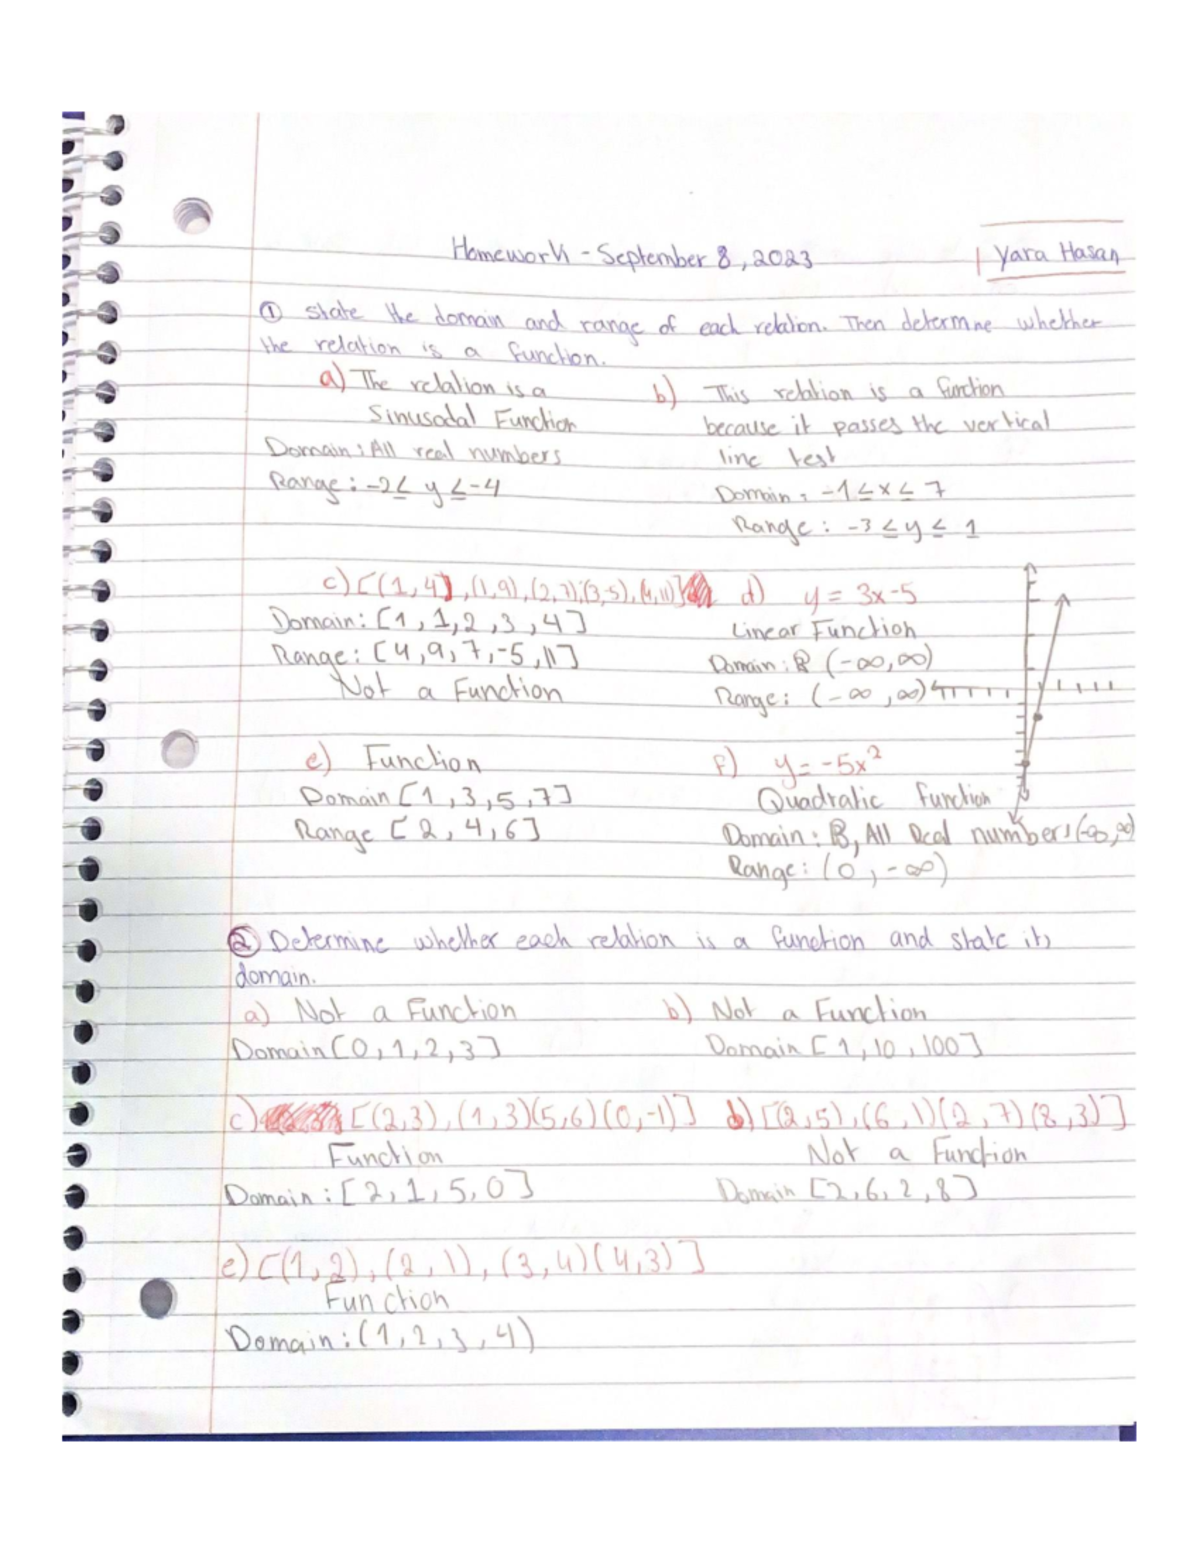 Homework - September 8, 2023
Yara Hasan
① State the domain and range of each relation. Then determine whether
the relation is a function.
a) The relation is a
Sinusodal Function
Domain: All real numbers
Range: -2≤ y ≤-4
b) This relation is a function
because it passes the vertical
line test
Domain: -1≤x≤ 7
Range: -3 ≤y ≤ 1
c) [(1,4), (1,9), (2,7), (3,-5), (4,11)]
Domain: [1, 1, 2, 3, 4]
Range: [4, 9, 7, -5, 11]
Not a Function
d) y = 3x-5
Linear Function
Domain: R (-∞,∞)
Range: (-∞,∞)
e) Function
Domain [1, 3, 5, 7]
Range [2, 4, 6]
f) y = -5x²
Quadratic function
Domain: R, All Real numbers (-∞,∞)
Range: (0, -∞)
② Determine whether each relation is a function and state its
domain.
a) Not a Function
Domain [0, 1, 2, 3]
b) Not a Function
Domain [1, 10, 100]
c) [(2,3), (1,3)(5,6)(0,-1)]
Function
Domain: [2, 1, 5, 0]
d) [(2,5), (6,1)(2,7)(8,3)]
Not a Function
Domain [2, 6, 2, 8]
e) [(1,2), (2,1), (3,4)(4,3)]
Function
Domain: (1, 2, 3, 4)